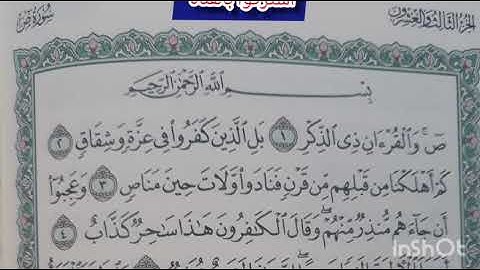 الجزء الثالث والعشرون
سورة ص
بِسْمِ اللَّهِ الرَّحْمَٰنِ الرَّحِيمِ
صٓ ۚ وَالْقُرْءَانِ ذِي الذِّكْرِ ١ بَلِ الَّذِينَ كَفَرُوا فِي عِزَّةٍ وَشِقَاقٍ ٢
كَمْ أَهْلَكْنَا مِن قَبْلِهِم مِّن قَرْنٍ فَنَادَوا وَّلَاتَ حِينَ مَنَاصٍ ٣ وَعَجِبُوا
أَن جَاءَهُم مُّنذِرٌ مِّنْهُمْ ۖ وَقَالَ الْكَٰفِرُونَ هَٰذَا سَٰحِرٌ كَذَّابٌ ٤
InShOt